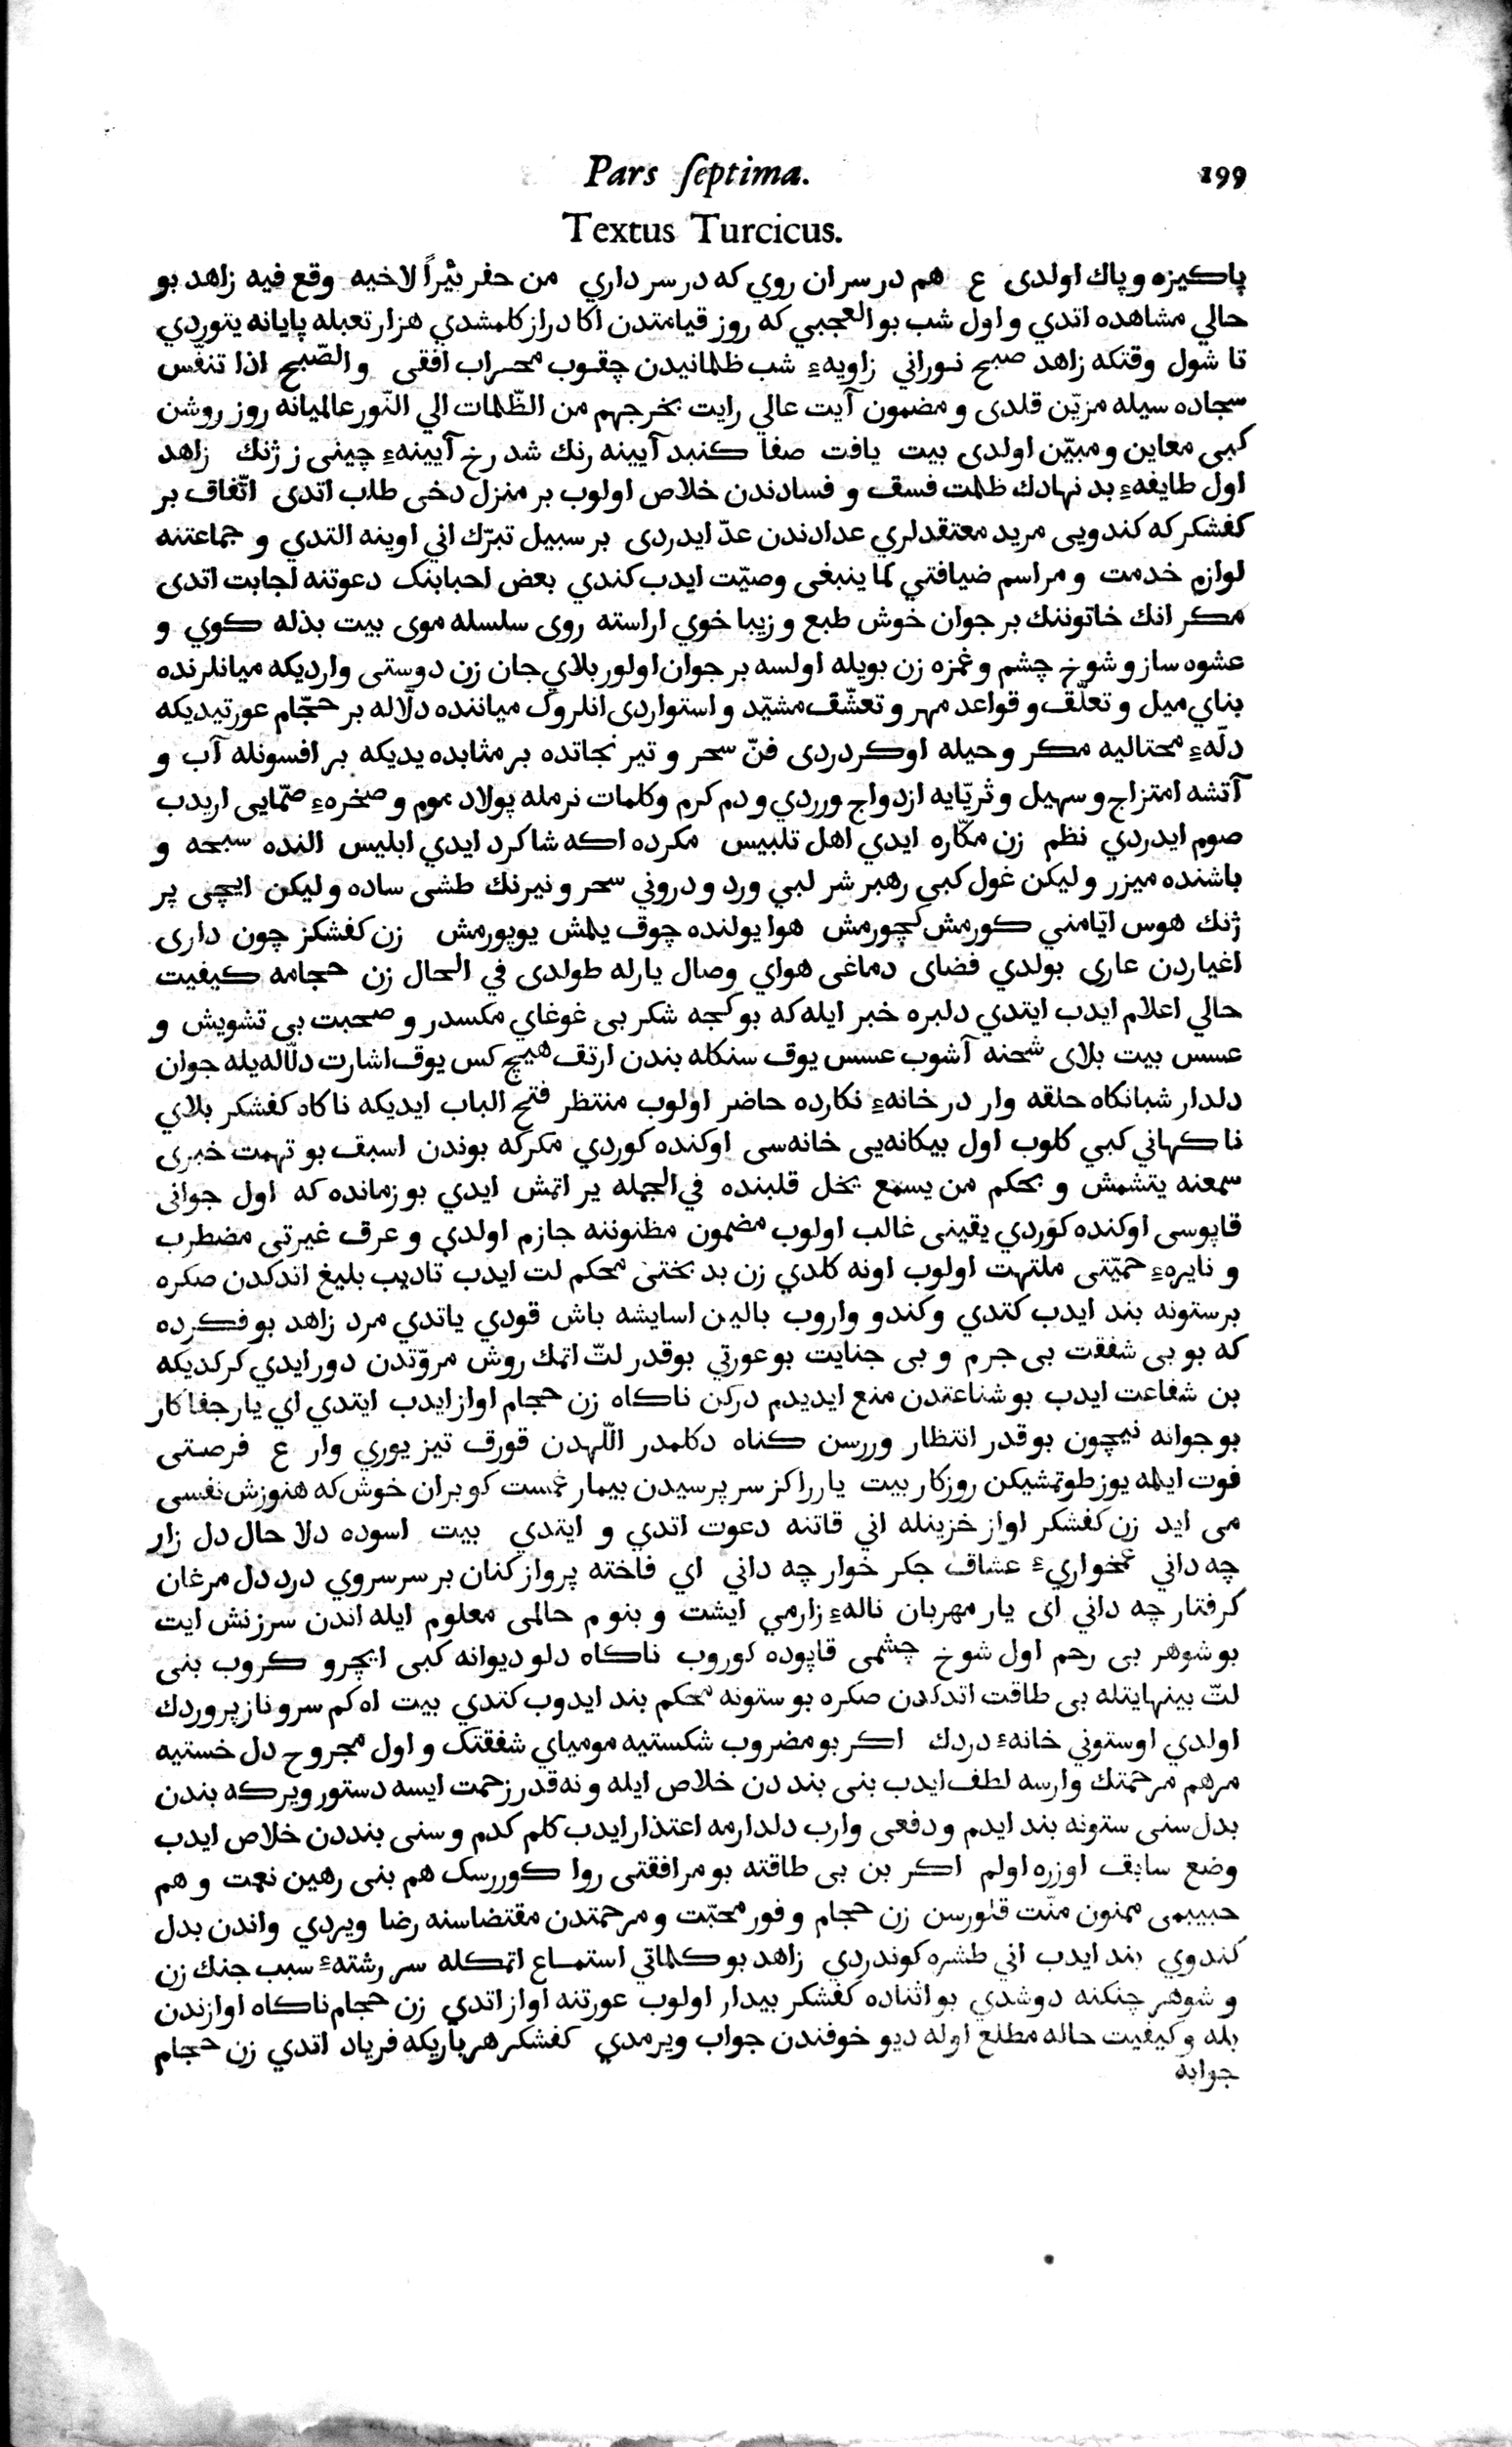 Pars septima. 199
Textus Turcicus.
پاكيزه و پاك اولدى ع هم در سر ان روي كه در سر داري من حفر بئراً لاخيه وقع فيه زاهد بو
حالي مشاهده اتدي و اول شب بو العجبي كه روز قيامتدن اكا دراز كلمشدي هزار تعبله پايانه يتوردي
تا شول وقتكه زاهد صبح نوراني زاويهٔ شب ظلمانيدن چقوب محراب افقى والصّبح اذا تنفّس
سجاده سيله مزيّن قلدى و مضمون آيت عالي رايت يخرجهم من الظّلمات الي النّور عالميانه روز روشن
كبى معاين و مبيّن اولدى بيت يافت صفا كنبد آيينه رنك شد رخ آيينهٔ چينى ز ژنك زاهد
اول طايفهٔ بد نهادك ظلمت فسق و فسادندن خلاص اولوب بر منزل دخى طلب اتدى اتّفاق بر
كفشكر كه كندويى مريد معتقدلري عدادندن عدّ ايدردى بر سبيل تبرّك اني اوينه التدي و جماعتنه
لوازم خدمت و مراسم ضيافتي كما ينبغى وصيّت ايدب كندي بعض احبابنك دعوتنه اجابت اتدى
مكر انك خاتوننك بر جوان خوش طبع و زيبا خوي اراسته روى سلسله موى بيت بذله كوي و
عشوه ساز و شوخ چشم و غمزه زن بويله اولسه بر جوان اولور بلاي جان زن دوستى وارديكه ميانلرنده
بناي ميل و تعلّق و قواعد مهر و تعشّق مشيّد و استواردى انلروك مياننده دلّاله بر حجّام عورتيديكه
دلّهٔ محتاليه مكر وحيله اوكردردى فنّ سحر و تيرنجاتده بر مثابده يديكه بر افسونله آب و
آتشه امتزاج و سهيل و ثريّايه ازدواج ورردي و دم كرم وكلمات نرمله پولاد موم و صخرهٔ صمّايى اريدب
صوم ايدردي نظم زن مكّاره ايدي اهل تلبيس مكرده اكه شاكرد ايدي ابليس النده سبحه و
باشنده ميزر و ليكن غول كبى رهبر شر لبي ورد و دروني سحر و نيرنك طشى ساده و ليكن ايچى پر
ژنك هوس ايّامني كورمش كچورمش هوا يولنده چوق يلمش يوپورمش زن كفشكز چون دارى
اغياردن عارى بولدي فضاى دماغى هواي وصال يارله طولدى في الحال زن حجامه كيفيت
حالي اعلام ايدب ايتدي دلبره خبر ايله كه بو كجه شكر بى غوغاي مكسدر و صحبت بى تشويش و
عسس بيت بلاى شحنه آشوب عسس يوق سنكله بندن ارتق هيچ كس يوق اشارت دلّاله يله جوان
دلدار شبانكاه حلقه وار در خانهٔ نكارده حاضر اولوب منتظر فتح الباب ايديكه ناكاه كفشكر بلاي
ناكهاني كبي كلوب اول بيكانه يى خانه سى اوكنده كوردي مكركه بوندن اسبق بو تهمت خبرى
سمعنه يتشمش و بحكم من يسمع يخل قلبنده في الجمله ير اتمش ايدي بو زمانده كه اول جوانى
قاپوسى اوكنده كوردي يقينى غالب اولوب مضمون مظنوننه جازم اولدي و عرق غيرتى مضطرب
و نايرهٔ حميّتى ملتهت اولوب اونه كلدي زن بد بختى محكم لت ايدب تاديب بليغ اندكدن صكره
برستونه بند ايدب كتدي وكندو واروب بالين اسايشه باش قودي ياتدي مرد زاهد بو فكرده
كه بو بى شفقت بى جرم و بى جنايت بو عورتي بو قدر لتّ اتمك روش مروّتدن دور ايدي كركديكه
بن شفاعت ايدب بو شناعتدن منع ايديدم دركن ناكاه زن حجام اواز ايدب ايتدي اي يار جفاكار
بو جوانه نيچون بو قدر انتظار وررسن كناه دكلمدر اللّهدن قورق تيز يوري وار ع فرصتى
فوت ايلمه يوز طوتمشيكن روزكار بيت يار را كز سر پرسيدن بيمار غمست كو بران خوش كه هنوزش نفسى
مى ايد زن كفشكر اواز خزينله اني قاتنه دعوت اتدي و ايتدي بيت اسوده دلا حال دل زار
چه داني غمخوارئ عشاق جكر خوار چه داني اي فاخته پرواز كنان بر سر سروي درد دل مرغان
كرفتار چه داني اى يار مهربان نالهٔ زارمي ايشت و بنوم حالمى معلوم ايله اندن سرزنش ايت
بو شوهر بى رحم اول شوخ چشمى قاپوده كوروب ناكاه دلو ديوانه كبى ايچرو كروب بنى
لتّ بينهايتله بى طاقت اتدكدن صكره بو ستونه محكم بند ايدوب كتدي بيت اه كم سرو ناز پروردك
اولدي اوستوني خانهٔ دردك اكر بو مضروب شكستيه مومياي شفقتك و اول مجروح دل خستيه
مرهم مرحمتك وارسه لطف ايدب بنى بند دن خلاص ايله و نه قدر زحمت ايسه دستور ويركه بندن
بدل سنى ستونه بند ايدم و دفعى وارب دلدارمه اعتذار ايدب كلم كدم و سنى بنددن خلاص ايدب
وضع سابق اوزره اولم اكر بن بى طاقته بو مرافقتى روا كوررسك هم بنى رهين نعمت و هم
حبيبمى ممنون منّت قلورسن زن حجام و فور محبّت و مرحمتدن مقتضاسنه رضا ويردي واندن بدل
كندوي بند ايدب اني طشره كوندردي زاهد بو كلماتي استماع اتمكله سر رشتهٔ سبب جنك زن
و شوهر چنكنه دوشدي بو اثناده كفشكر بيدار اولوب عورتنه اواز اتدي زن حجام ناكاه اوازندن
بله و كيفيت حاله مطلع اوله ديو خوفندن جواب ويرمدي كفشكر هر باريكه فرياد اتدي زن حجام
جوابه